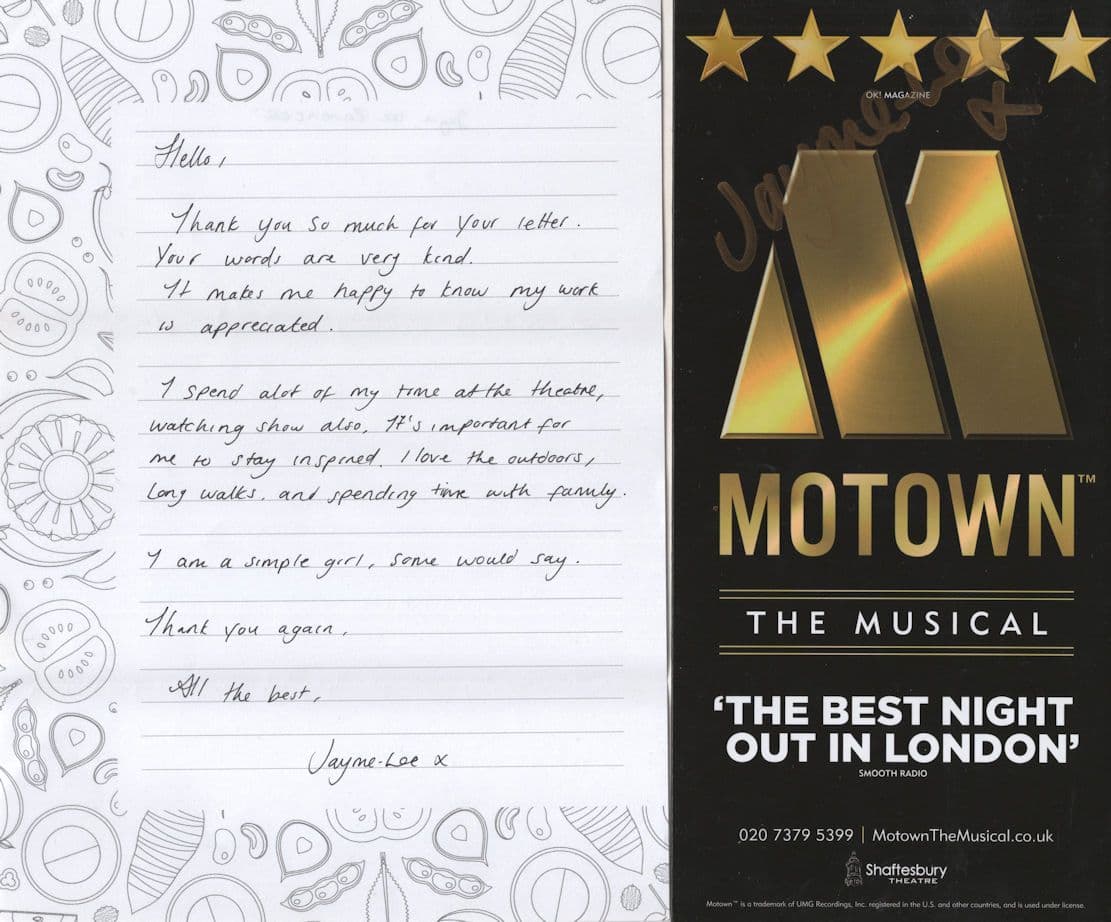 Hello,
Thank you so much for your letter.
Your words are very kind.
It makes me happy to know my work
is appreciated.
I spend alot of my time at the theatre,
watching show also, It's important for
me to stay inspired. I love the outdoors,
Long walks, and spending time with family.
I am a simple girl, some would say.
Thank you again,
All the best,
Jayme-Lee x
OK! MAGAZINE
Jayme-Lee
x
MOTOWN™
THE MUSICAL
'THE BEST NIGHT
OUT IN LONDON'
SMOOTH RADIO
020 7379 5399 | MotownTheMusical.co.uk
Shaftesbury
THEATRE
Motown™ is a trademark of UMG Recordings, Inc. registered in the U.S. and other countries, and is used under license.